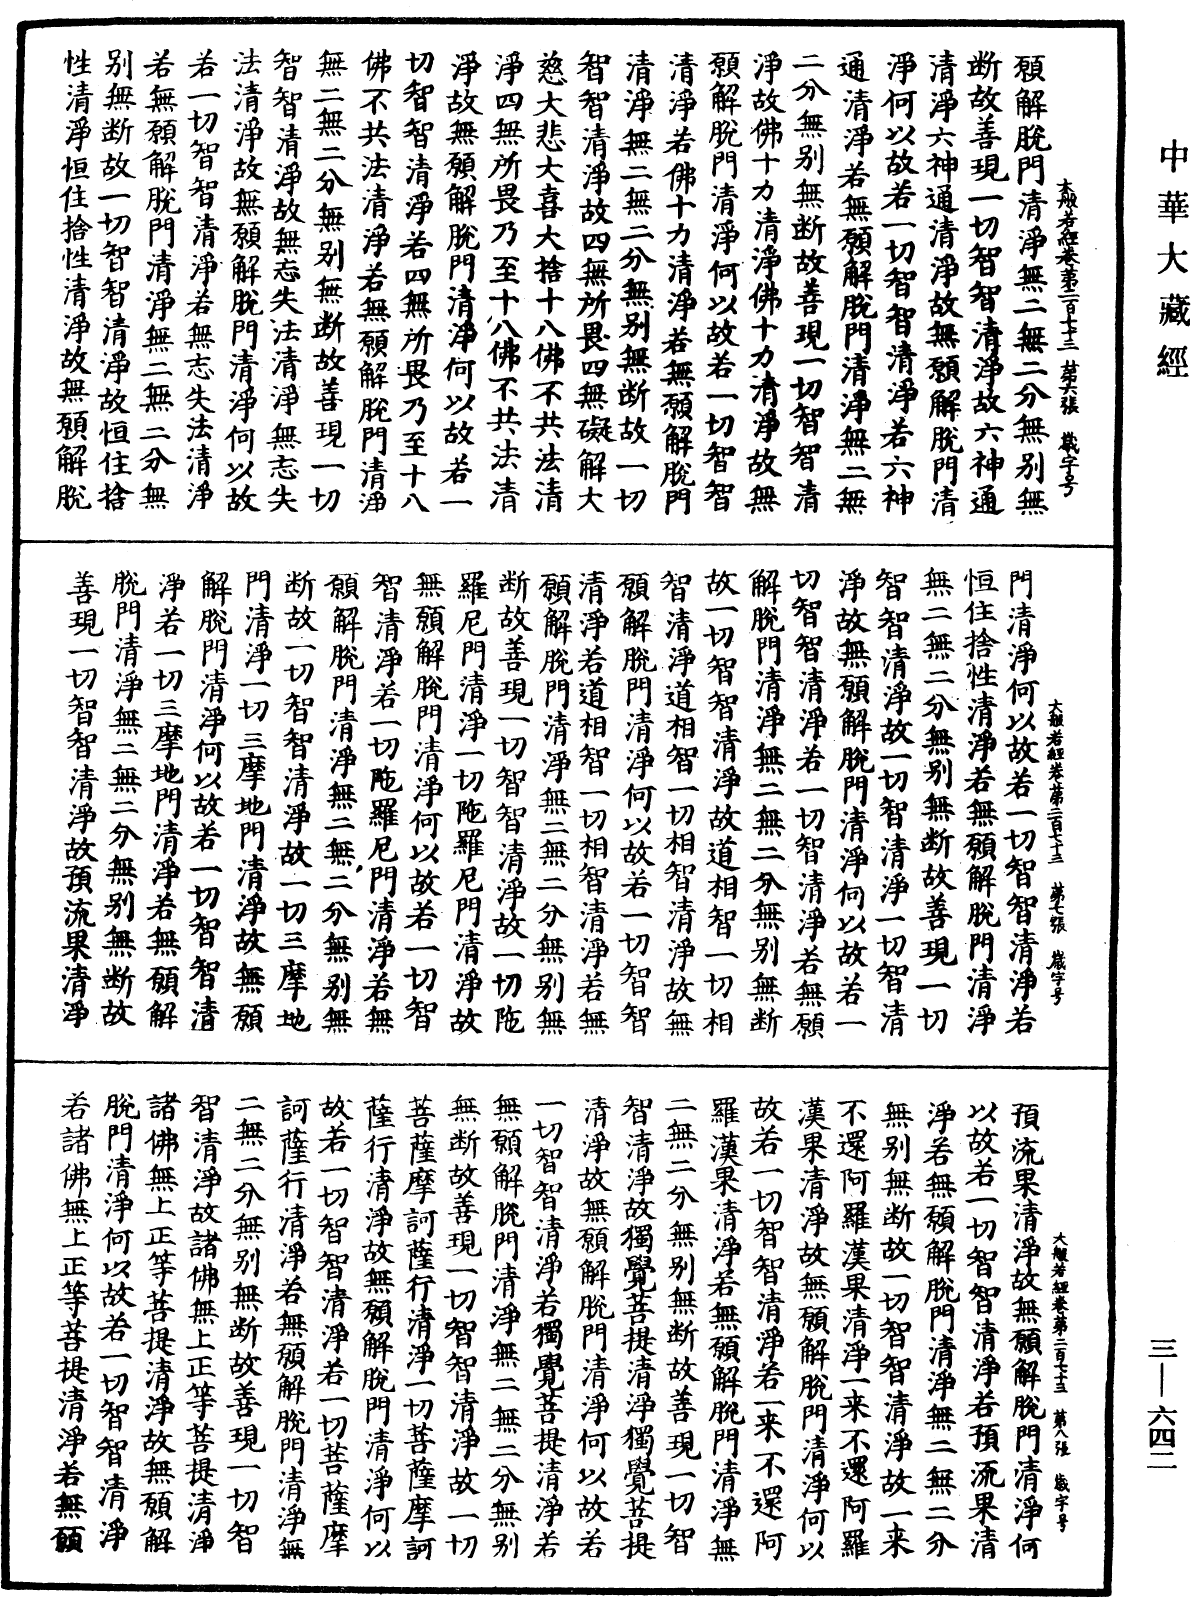 中華大藏經
大般若經卷第二百七十三 第六張 歲字号
願解脫門清淨無二無二分無別無
斷故善現一切智智清淨故六神通
清淨六神通清淨故無願解脫門清
淨何以故若一切智智清淨若六神
通清淨若無願解脫門清淨無二無
二分無別無斷故善現一切智智清
淨故佛十力清淨佛十力清淨故無
願解脫門清淨何以故若一切智智
清淨若佛十力清淨若無願解脫門
清淨無二無二分無別無斷故一切
智智清淨故四無所畏四無礙解大
慈大悲大喜大捨十八佛不共法清
淨四無所畏乃至十八佛不共法清
淨故無願解脫門清淨何以故若一
切智智清淨若四無所畏乃至十八
佛不共法清淨若無願解脫門清淨
無二無二分無別無斷故善現一切
智智清淨故無忘失法清淨無忘失
法清淨故無願解脫門清淨何以故
若一切智智清淨若無忘失法清淨
若無願解脫門清淨無二無二分無
別無斷故一切智智清淨故恒住捨
性清淨恒住捨性清淨故無願解脫
大般若經卷第二百七十三 第七張 歲字号
門清淨何以故若一切智智清淨若
恒住捨性清淨若無願解脫門清淨
無二無二分無別無斷故善現一切
智智清淨故一切智清淨一切智清
淨故無願解脫門清淨何以故若一
切智智清淨若一切智清淨若無願
解脫門清淨無二無二分無別無斷
故一切智智清淨故道相智一切相
智清淨道相智一切相智清淨故無
願解脫門清淨何以故若一切智智
清淨若道相智一切相智清淨若無
願解脫門清淨無二無二分無別無
斷故善現一切智智清淨故一切陁
羅尼門清淨一切陁羅尼門清淨故
無願解脫門清淨何以故若一切智
智清淨若一切陁羅尼門清淨若無
願解脫門清淨無二無二分無別無
斷故一切智智清淨故一切三摩地
門清淨一切三摩地門清淨故無願
解脫門清淨何以故若一切智智清
淨若一切三摩地門清淨若無願解
脫門清淨無二無二分無別無斷故
善現一切智智清淨故預流果清淨
大般若經卷第二百七十三 第八張 歲字号
預流果清淨故無願解脫門清淨何
以故若一切智智清淨若預流果清
淨若無願解脫門清淨無二無二分
無別無斷故一切智智清淨故一来
不還阿羅漢果清淨一来不還阿羅
漢果清淨故無願解脫門清淨何以
故若一切智智清淨若一来不還阿
羅漢果清淨若無願解脫門清淨無
二無二分無別無斷故善現一切智
智清淨故獨覺菩提清淨獨覺菩提
清淨故無願解脫門清淨何以故若
一切智智清淨若獨覺菩提清淨若
無願解脫門清淨無二無二分無別
無斷故善現一切智智清淨故一切
菩薩摩訶薩行清淨一切菩薩摩訶
薩行清淨故無願解脫門清淨何以
故若一切智智清淨若一切菩薩摩
訶薩行清淨若無願解脫門清淨無
二無二分無別無斷故善現一切智
智清淨故諸佛無上正等菩提清淨
諸佛無上正等菩提清淨故無願解
脫門清淨何以故若一切智智清淨
若諸佛無上正等菩提清淨若無願
三—六四二